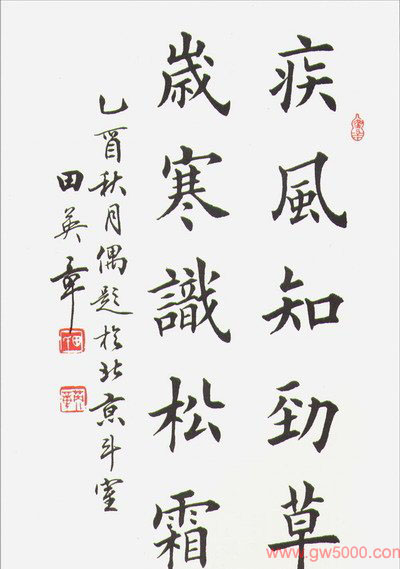 疾風知勁草
嵗寒識松霜
乙酉秋月偶題於北京斗室
田英章
www.gw5000.com